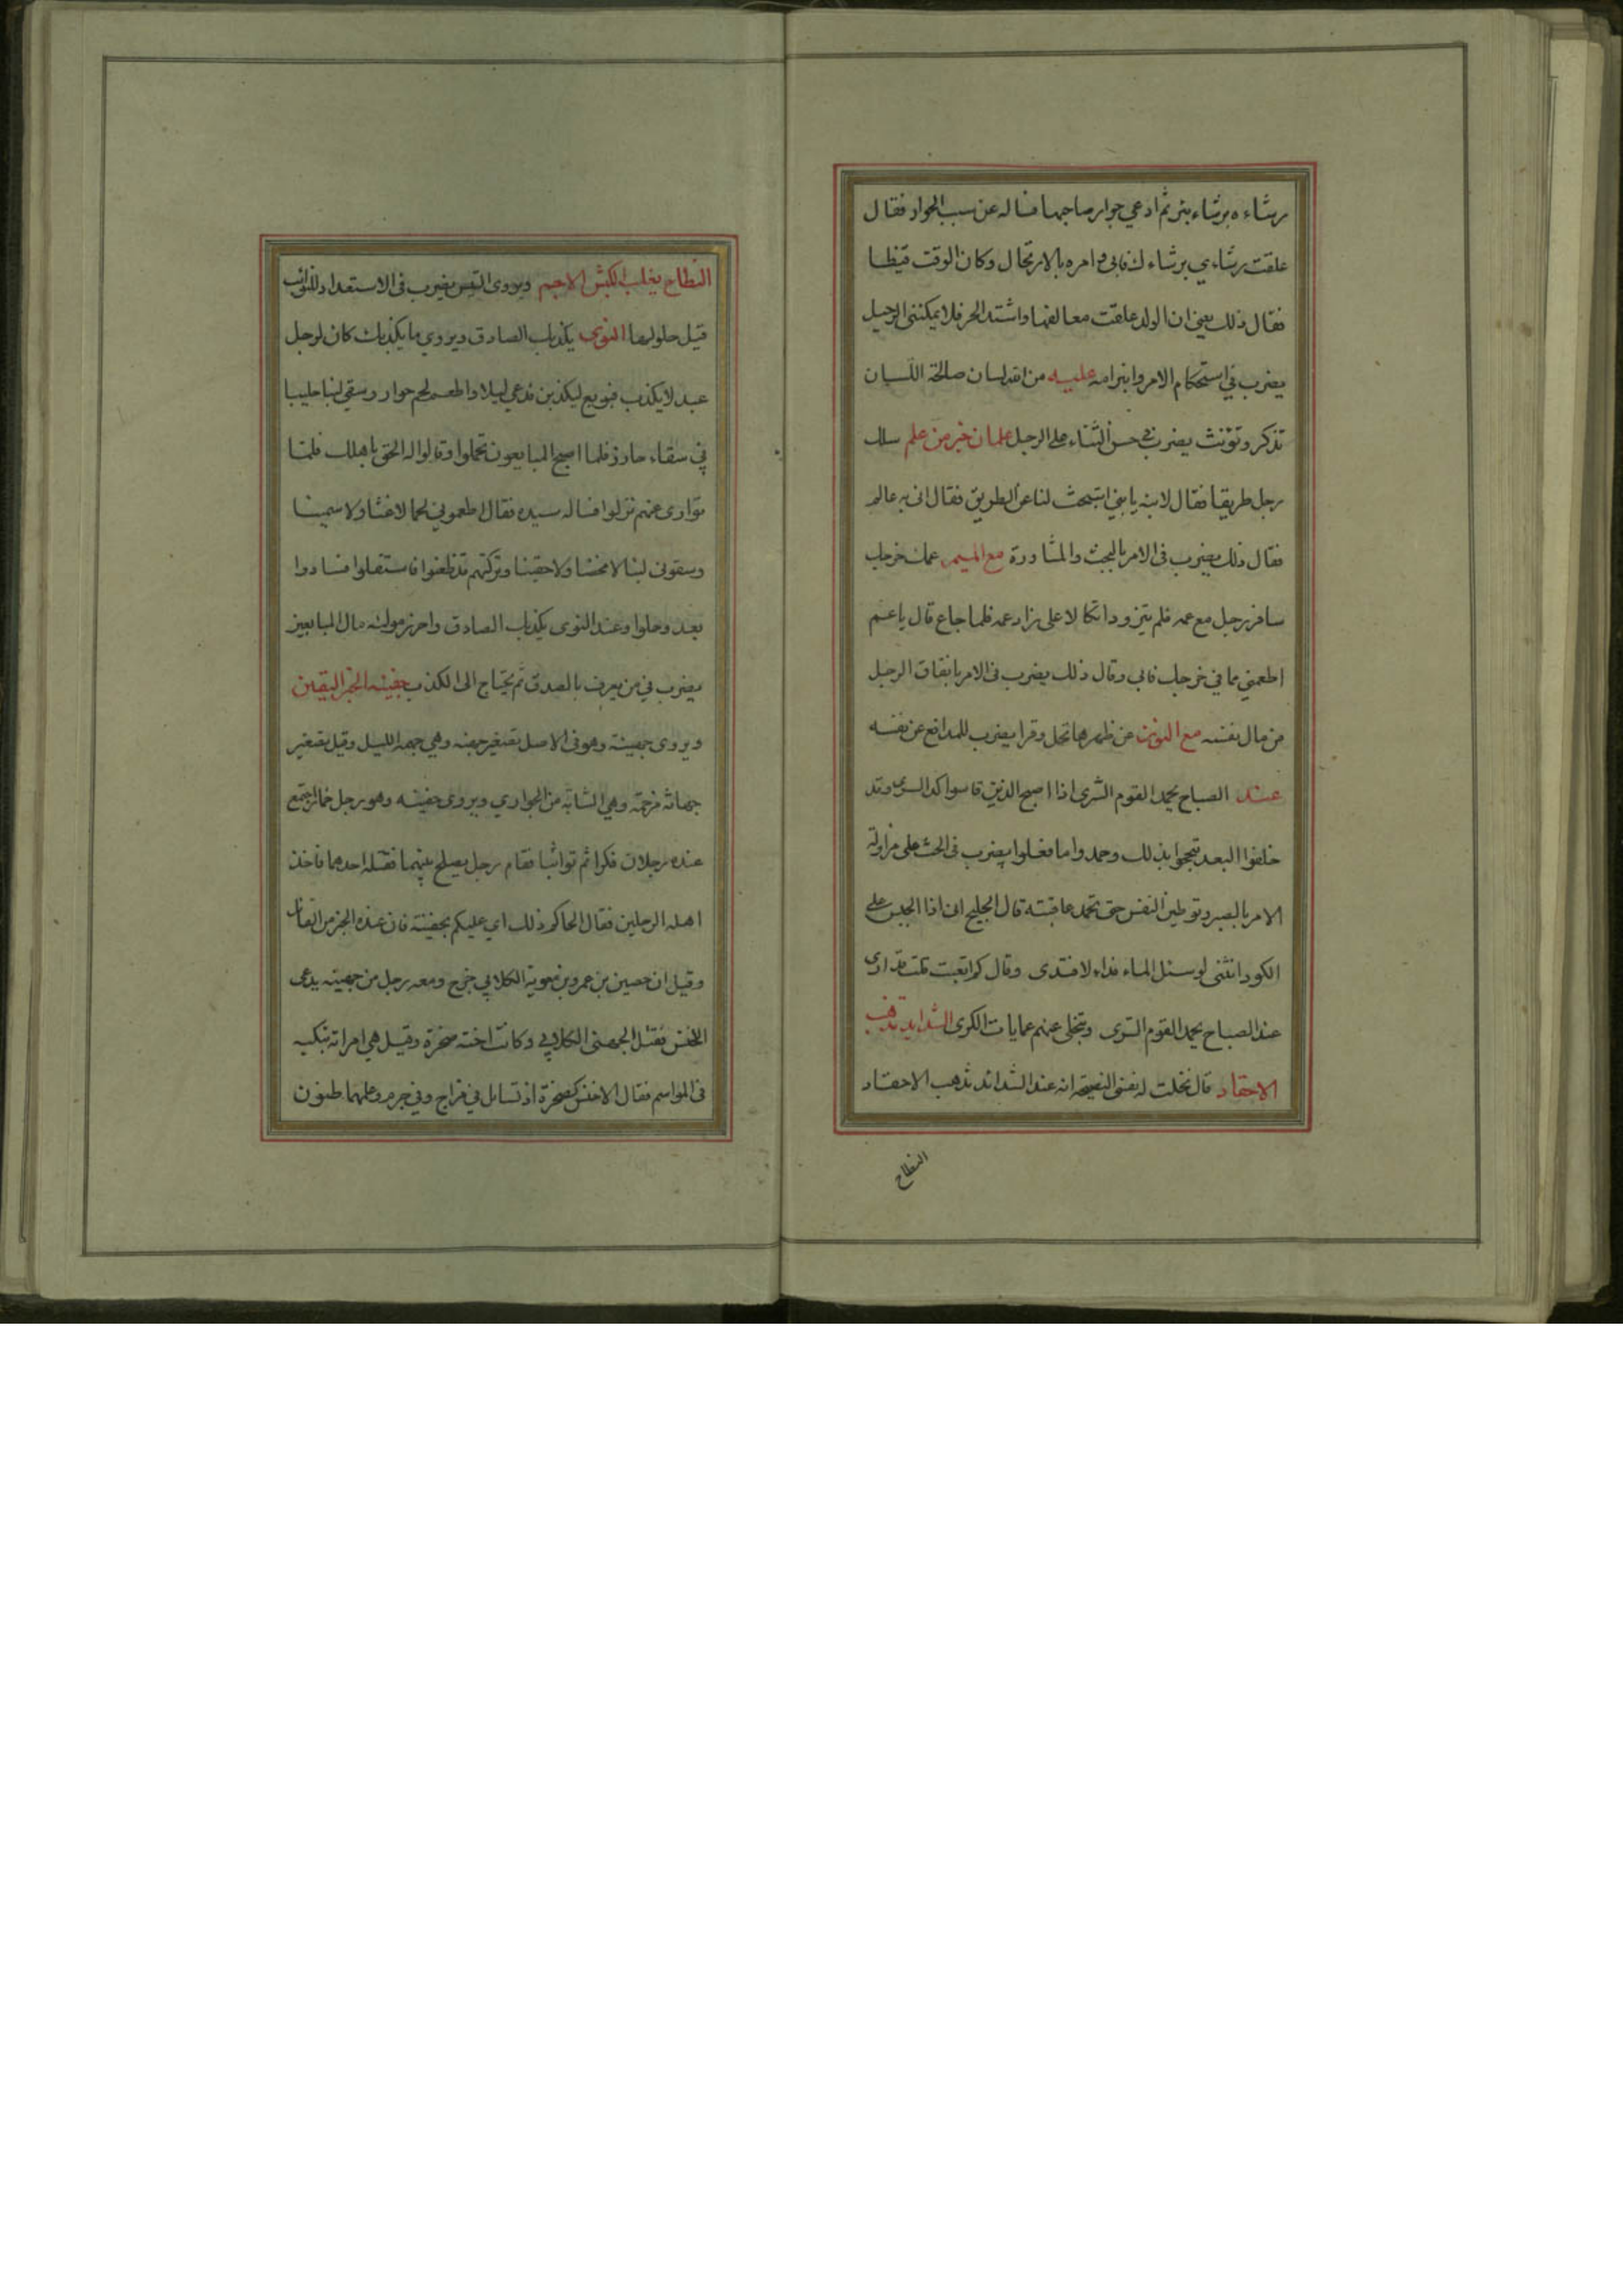 رشاءه برشاء بئر ثم ادعي جوار صاحبها فساله عن سبب الجوار فقال
علقت رشاءي برشاءك فابى وامره بالارتحال وكان الوقت قيظا
فقال ذلك يعني ان الولد علقت معالقها واشتد الحر فلا يمكنني الرحيل
يضرب في استحكام الامر وانبرامه عليه من الله لسان صالحة اللسان
تذكر وتؤنث يضرب في حسن الثناء على الرجل علمان خير من علم سلك
رجل طريقا فقال لابنه يا بني استبحث لنا عن الطريق فقال اني به عالم
فقال ذلك يضرب في الامر بالبحث والمشاورة مع الميم عمك خرجك
سافر رجل مع عمه فلم يتزود اتكالا على زاد عمه فلما جاع قال يا عم
اطعمني مما في خرجك فابى وقال ذلك يضرب في الامر بانفاق الرجل
من مال نفسه مع النون عن ظهرها تحل وقرا يضرب للمدافع عن نفسه
عند الصباح يحمد القوم السرى اذا اصبح الذين قاسوا كد السرى وقد
خلفوا البعد تبجحوا بذلك وحمدوا ما فعلوا يضرب في الحث على مزاولة
الامر بالصبر وتوطين النفس حتى تحمد عاقبته قال الجليح اني اذا الجبس على
الكور انثنى لو سئل الماء فداء لافتدى وقال كم اتعبت قلت قد ارى
عند الصباح يحمد القوم السرى وتنجلى عنهم عمايات الكرى الشدايد تذهب
الاحقاد قال نخلت له نفسي النصيحة انه عند الشدائد تذهب الاحقاد
النطاح
النطاح يغلب الكبش الاجم ويروى التيس يضرب في الاستعداد للنوائب
قبل حلولها النوى يكذبك الصادق ويروي ما يكذبك كان لرجل
عبد لا يكذب فبويع ليكذبن فدعي ليلا واطعم لحم حوار وسقي لبنا حليبا
في سقاء حازر فلما اصبح المبايعون تحملوا وقالوا له الحق باهلك فلما
توارى عنهم نزلوا فساله سيده فقال اطعموني لحما لا غثا ولا سمينا
وسقوني لبنا لا محضا ولا حقينا وتركتهم قد ظعنوا فاستقلوا فساروا
بعد وحلوا وعند النوى يكذبك الصادق واحرز مولاه مال المبايعين
يضرب في من يعرف بالصدق ثم يحتاج الى الكذب جفينه الخبر اليقين
ويروى جهينة وهو في الاصل تصغير جهنه وهي جهمة الليل وقيل تصغير
جهانة مرخمة وهي الشابة من الجواري ويروى حفينه وهو رجل خمار اجتمع
عنده رجلان فكرا ثم تواثبا فقام رجل يصلح بينهما فقتله احدهما فاخذ
اهله الرجلين فقال الحاكم ذلك اي عليكم بجفينة فان عنده الخبر من القاتل
وقيل ان حصين بن عمرو بن معوية الكلابي خرج ومعه رجل من جهينه يدعى
الاخنس فقتل الجهني الكلابي وكانت اخته صخرة وقيل هي امراته تبكيه
في المواسم فقال الاخنس كصخرة اذ تسائل في مراح وفي جرم وعلمهما ظنون